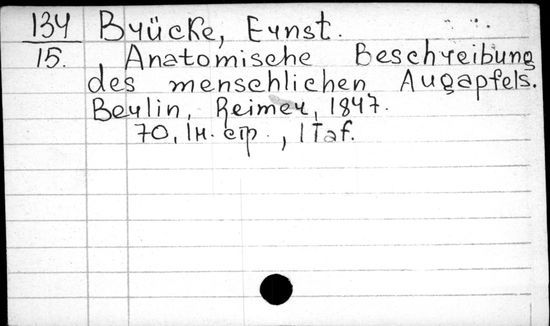 134 Brücke, Ernst.
15. Anatomische Beschreibung
des menschlichen Augapfels.
Berlin, Reimer, 1847.
70, 1 н. стр., 1 Taf.